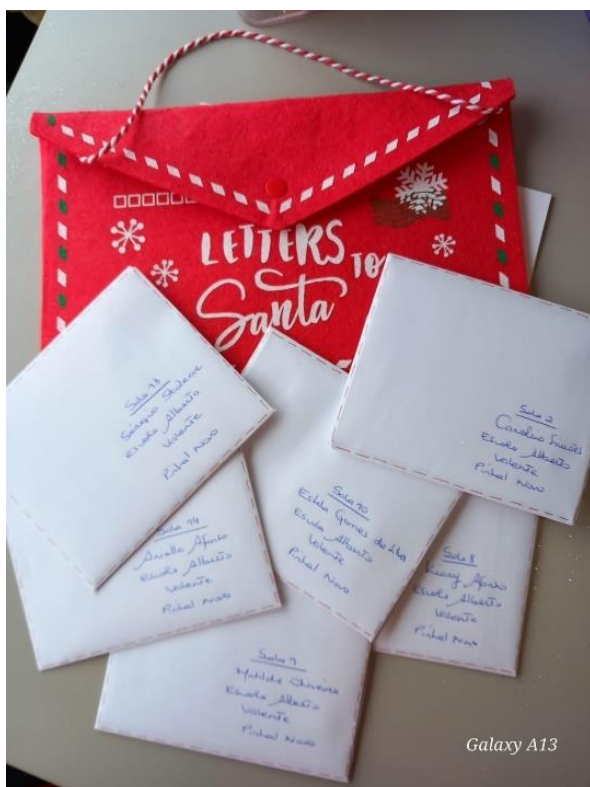 LETTERS
TO
Santa
Sala 13
Escola Alberto
Valente
Pinhal Novo
Sala 2
Carolina Simões
Escola Alberto
Valente
Pinhal Novo
Sala 10
Estela Gomes da Silva
Escola Alberto
Valente
Pinhal Novo
Sala 14
Afonso
Escola Alberto
Valente
Pinhal Novo
Sala 8
Kiary Afonso
Escola Alberto
Valente
Pinhal Novo
Sala 9
Matilde Oliveira
Escola Alberto
Valente
Pinhal Novo
Galaxy A13